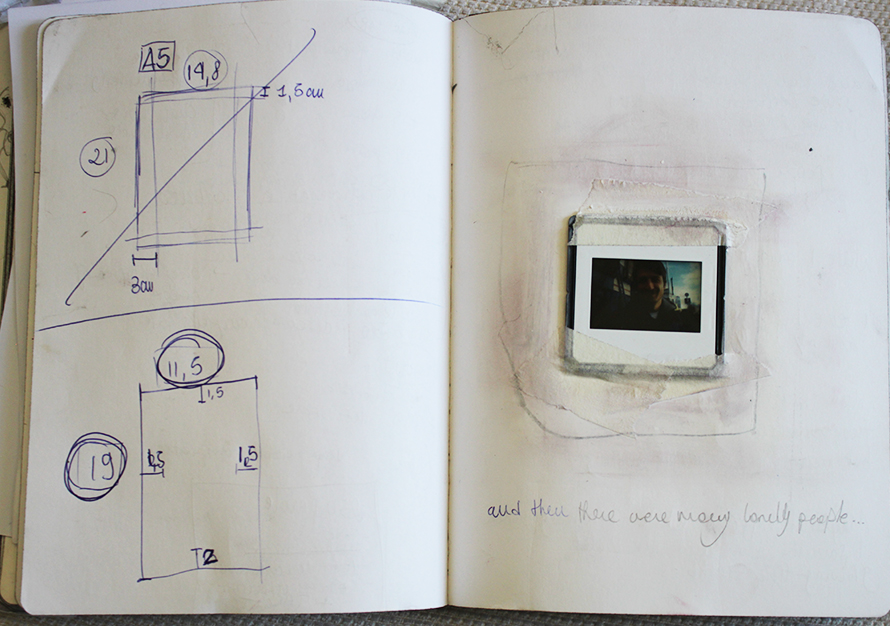 A5
14,8
1,5cm
21
3cm
11,5
1,5
19
1,5
1,5
2
and then there were many lonely people...